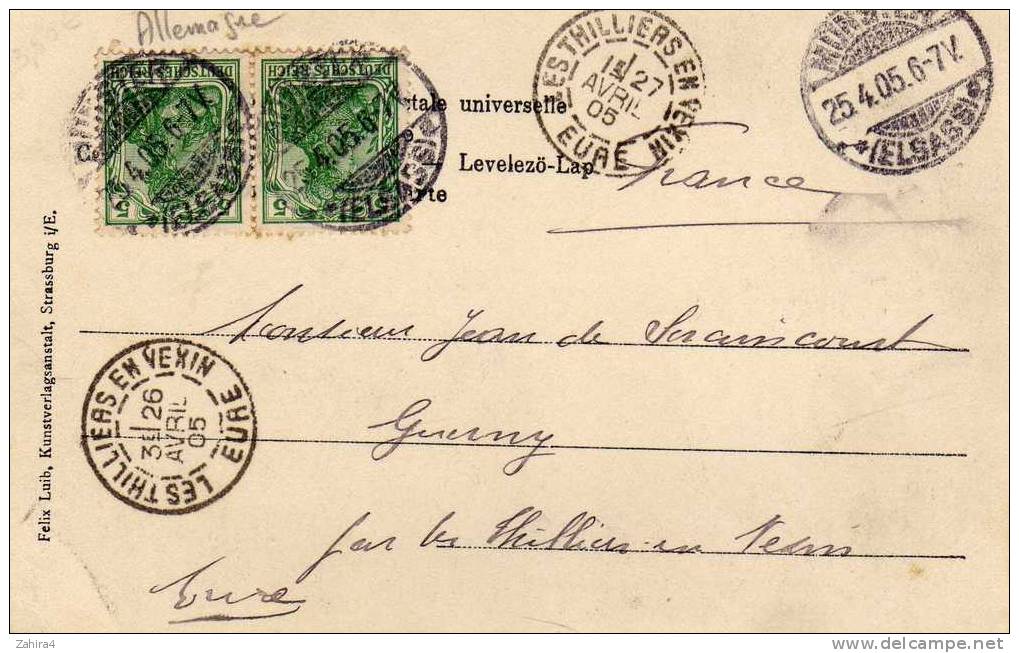 Allemagne
DEUTSCHES REICH
DEUTSCHES REICH
5 5
5 5
tale universelle
Levelezö-Lap
rte
LES THILLIERS EN VEXIN
1E 27
AVRIL
05
EURE
25.4.05.6-7V.
*(ELSASS)*
France
Monsieur Jean de Seraincourt
Guerny
par les Thilliers en Vexin
Eure
LES THILLIERS EN VEXIN
3E 26
AVRIL
05
EURE
Felix Luib, Kunstverlagsanstalt, Strassburg i/E.
Zahira4
www.delcampe.net